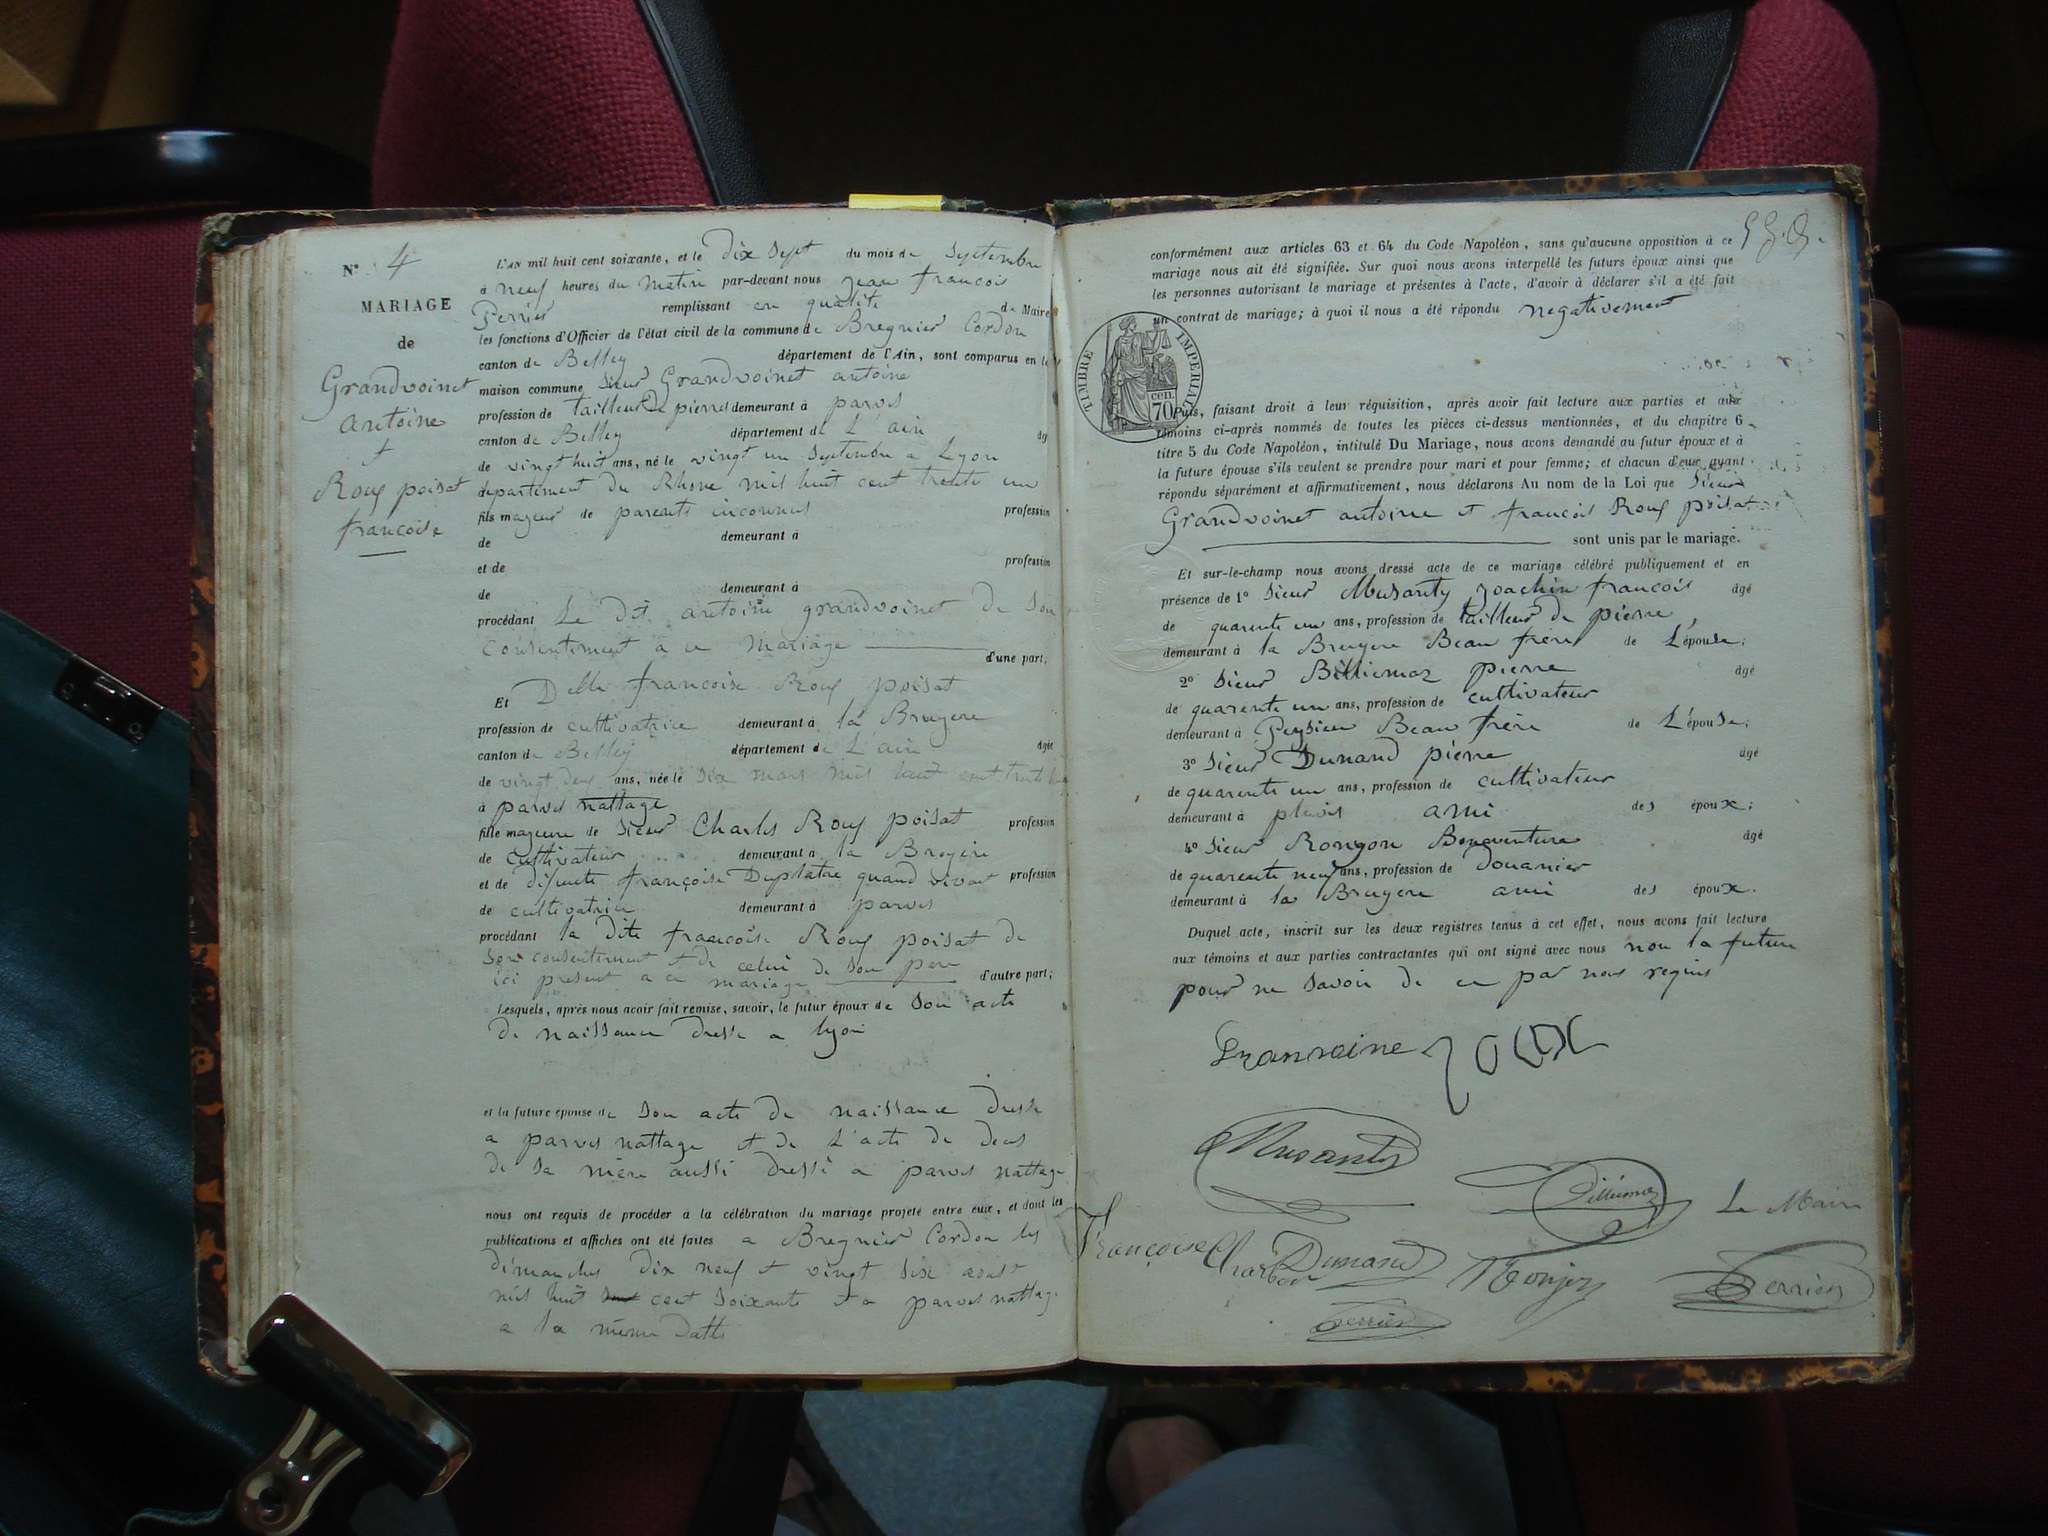 N° 4
MARIAGE
de
Grandvoinet
antoine
et
Roux poisat
francoise
L'AN mil huit cent soixante, et le dix sept du mois de Septembre
à neuf heures du matin par-devant nous jean francois
Perrier remplissant en qualité de Maire
les fonctions d'Officier de l'état civil de la commune de Bregnier Cordon
canton de Belley département de l'Ain, sont comparus en la
maison commune Sieur Grandvoinet antoine
profession de tailleur de pierres demeurant à parves
canton de Belley département de L'ain âgé
de vingt huit ans, né le vingt un Septembre a Lyon
departement du Rhone mil huit cent trente un
fils majeur de parents inconnus profession
de demeurant à
et de profession
de demeurant à
procédant Le dit antoine grandvoinet de Son
Consentement a ce mariage d'une part;
Et Delle francoise Roux poisat
profession de cultivatrice demeurant à la Bruyere
canton de Belley département de L'ain âgée
de vingt deux ans, née le Six mars mil huit cent trente
à parves nattage
fille majeure de Sieur Charles Roux poisat profession
de cultivateur demeurant à la Bruyere
et de défunte françoise Duplatre quand vivait profession
de cultivatrice demeurant à parves
procédant la dite francoise Roux poisat de
Son consentement et de celui de Son pere
ici present a ce mariage d'autre part;
Lesquels, après nous avoir fait remise, savoir, le futur époux de Son acte
de naissance dressé a Lyon
et la future épouse de Son acte de naissance dressé
a parves nattage et de L'acte de deces
de Sa mère aussi dressé a parves nattage
nous ont requis de procéder à la célébration du mariage projeté entre eux, et dont les
publications et affiches ont été faites a Bregnier Cordon les
dimanches dix neuf et vingt Six aout
mil huit cent Soixante et a parves nattage
a la même datte
conformément aux articles 63 et 64 du Code Napoléon, sans qu'aucune opposition à ce
mariage nous ait été signifiée. Sur quoi nous avons interpellé les futurs époux ainsi que
les personnes autorisant le mariage et présentes à l'acte, d'avoir à déclarer s'il a été fait
un contrat de mariage; à quoi il nous a été répondu negativement
TIMBRE IMPERIAL
70 cen.
Puis, faisant droit à leur réquisition, après avoir fait lecture aux parties et aux
témoins ci-après nommés de toutes les pièces ci-dessus mentionnées, et du chapitre 6
titre 5 du Code Napoléon, intitulé Du Mariage, nous avons demandé au futur époux et à
la future épouse s'ils veulent se prendre pour mari et pour femme; et chacun d'eux ayant
répondu séparément et affirmativement, nous déclarons Au nom de la Loi que Sieur
Grandvoinet antoine et francois Roux poisat
sont unis par le mariage.
Et sur-le-champ nous avons dressé acte de ce mariage célébré publiquement et en
présence de 1° Sieur Musanty Joachin francois âgé
de quarente un ans, profession de tailleur de pierre,
demeurant à la Bruyere Beau frere de L'épouse;
2° Sieur Billiemaz pierre âgé
de quarente un ans, profession de cultivateur
demeurant à Peysieu Beau frère de L'épouse;
3° Sieur Dunand pierre âgé
de quarente un ans, profession de cultivateur
demeurant à ami des époux;
4° Sieur Bonaventure âgé
de quarente neuf ans, profession de douanier
demeurant à la Bruyere ami des époux.
Duquel acte, inscrit sur les deux registres tenus à cet effet, nous avons fait lecture
aux témoins et aux parties contractantes qui ont signé avec nous non la future
pour ne Savoir de ce par nous requis
Musanty
Billiemaz
Le Maire
Françoise
Dunand
Perrier
Perrier